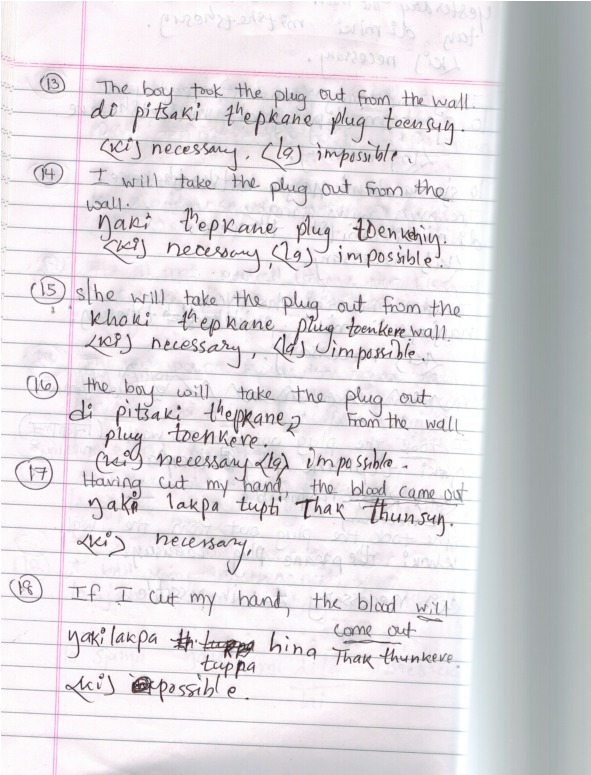 (13) The boy took the plug out from the wall.
di pitsaki thepkane plug toensuŋ.
<ki> necessary. <la> impossible.
(14) I will take the plug out from the
wall.
ŋaki thepkane plug toenkehiŋ.
<ki> necessary <la> impossible.
(15) s/he will take the plug out from the
khoki thepkane plug toenkere wall.
<ki> necessary, <la> impossible.
(16) the boy will take the plug out
di pitsaki thepkane, from the wall
plug toenkere.
<ki> necessary <la> impossible.
(17) Having cut my hand, the blood came out
ŋaki lakpa tupti Thak thunsuŋ.
<ki> necessary,
(18) If I cut my hand, the blood will
come out
ŋaki lakpa hina Thak thunkere.
tuppa
<ki> possible.